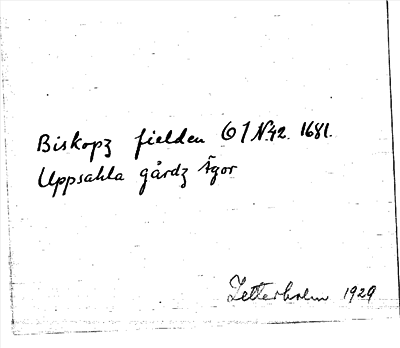 Biskopz fielden 61 N42. 1681.
Uppsahla gårdz Ägor
Zetterholm 1929